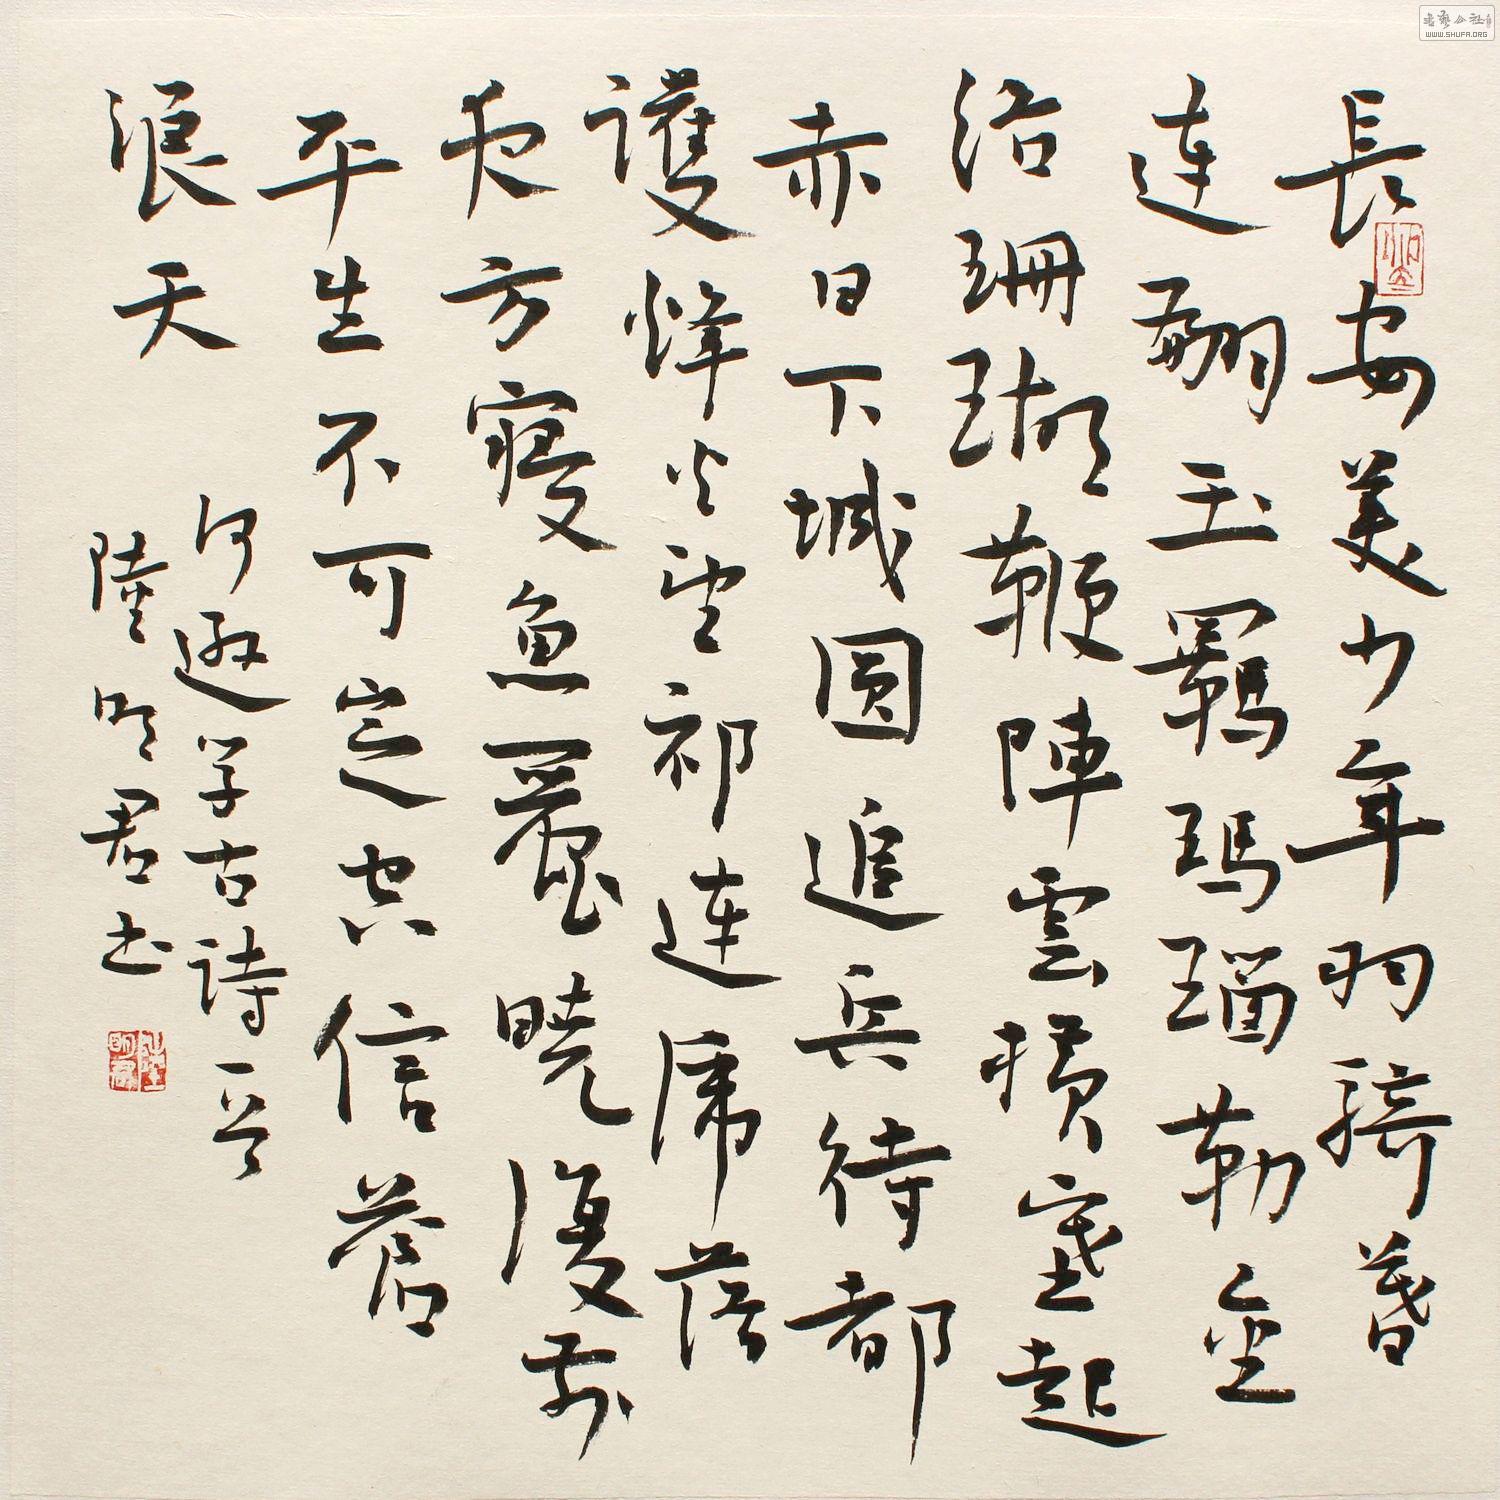 長安美少年羽騎暮
連翩玉羈瑪瑙勒金
絡珊瑚鞭陣雲橫塞起
赤日下城圓追兵待都
護烽火望祁連虎落
夜方寢魚麗曉復前
平生不可定空信蒼
浪天
何遜学古詩一首
陸明君书
陸明君
WWW.SHUFA.ORG